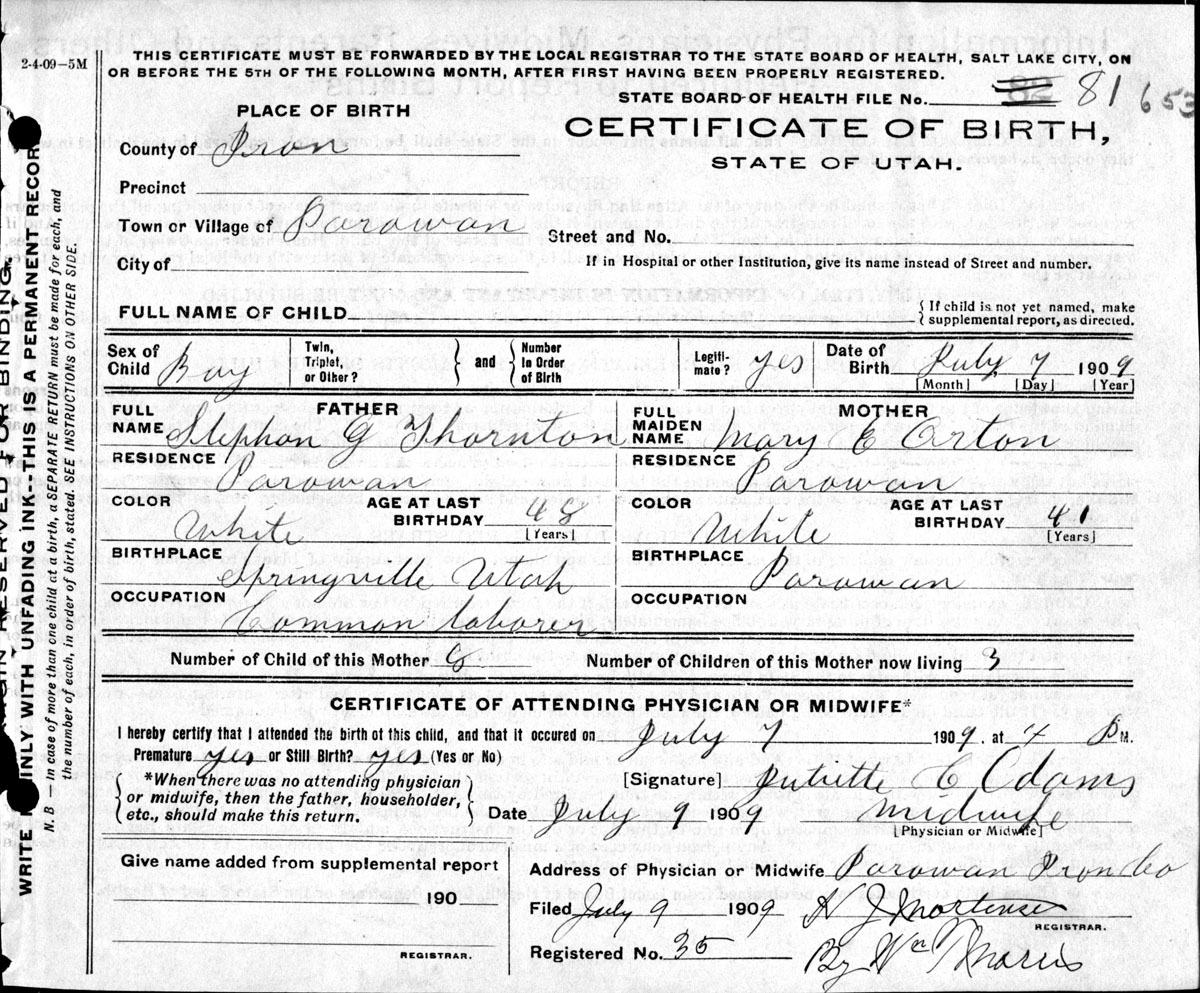 2-4-09—5M
THIS CERTIFICATE MUST BE FORWARDED BY THE LOCAL REGISTRAR TO THE STATE BOARD OF HEALTH, SALT LAKE CITY, ON
OR BEFORE THE 5TH OF THE FOLLOWING MONTH, AFTER FIRST HAVING BEEN PROPERLY REGISTERED.
STATE BOARD OF HEALTH FILE No. 82 81 653
PLACE OF BIRTH
CERTIFICATE OF BIRTH,
STATE OF UTAH.
County of Iron
Precinct
Town or Village of Parowan
Street and No.
City of
If in Hospital or other Institution, give its name instead of Street and number.
FULL NAME OF CHILD
{ If child is not yet named, make
supplemental report, as directed.
Sex of Child Boy Twin, Triplet, or Other? } and { Number In Order of Birth Legiti-mate? yes Date of Birth July 7 1909
[Month] [Day] [Year]
FATHER
FULL NAME Stephan G Thornton
MOTHER
FULL MAIDEN NAME Mary E Orton
RESIDENCE Parowan
RESIDENCE Parowan
COLOR White AGE AT LAST BIRTHDAY 48 [Years]
COLOR White AGE AT LAST BIRTHDAY 41 [Years]
BIRTHPLACE Springville Utah
BIRTHPLACE Parowan
OCCUPATION Common Laborer
OCCUPATION
Number of Child of this Mother 8 Number of Children of this Mother now living 3
CERTIFICATE OF ATTENDING PHYSICIAN OR MIDWIFE*
I hereby certify that I attended the birth of this child, and that it occured on July 7 1909, at 4 P M.
Premature yes or Still Birth? yes (Yes or No)
{ *When there was no attending physician
or midwife, then the father, householder,
etc., should make this return. }
[Signature] Juliette C Adams
Date July 9 1909 Midwife
[Physician or Midwife]
Give name added from supplemental report
190
REGISTRAR.
Address of Physician or Midwife Parowan Iron Co
Filed July 9 1909 H J Mortensen
REGISTRAR.
Registered No. 35 By Wm T Morris
MARGIN RESERVED FOR BINDING
WRITE PLAINLY WITH UNFADING INK---THIS IS A PERMANENT RECORD
N. B — In case of more than one child at a birth, a SEPARATE RETURN must be made for each, and
the number of each, in order of birth, stated. SEE INSTRUCTIONS ON OTHER SIDE.